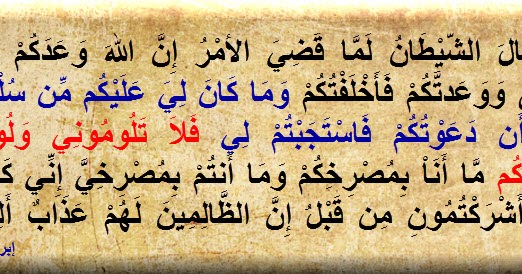 الشَّيْطَانُ لَمَّا قُضِيَ الأَمْرُ إِنَّ اللهَ وَعَدَكُمْ
وَوَعَدتُّكُمْ فَأَخْلَفْتُكُمْ وَمَا كَانَ لِيَ عَلَيْكُم مِّن
أَن دَعَوْتُكُمْ فَاسْتَجَبْتُمْ لِي فَلاَ تَلُومُونِي
مَّا أَنَاْ بِمُصْرِخِكُمْ وَمَا أَنتُمْ بِمُصْرِخِيَّ إِنِّي
أَشْرَكْتُمُونِ مِن قَبْلُ إِنَّ الظَّالِمِينَ لَهُمْ عَذَابٌ